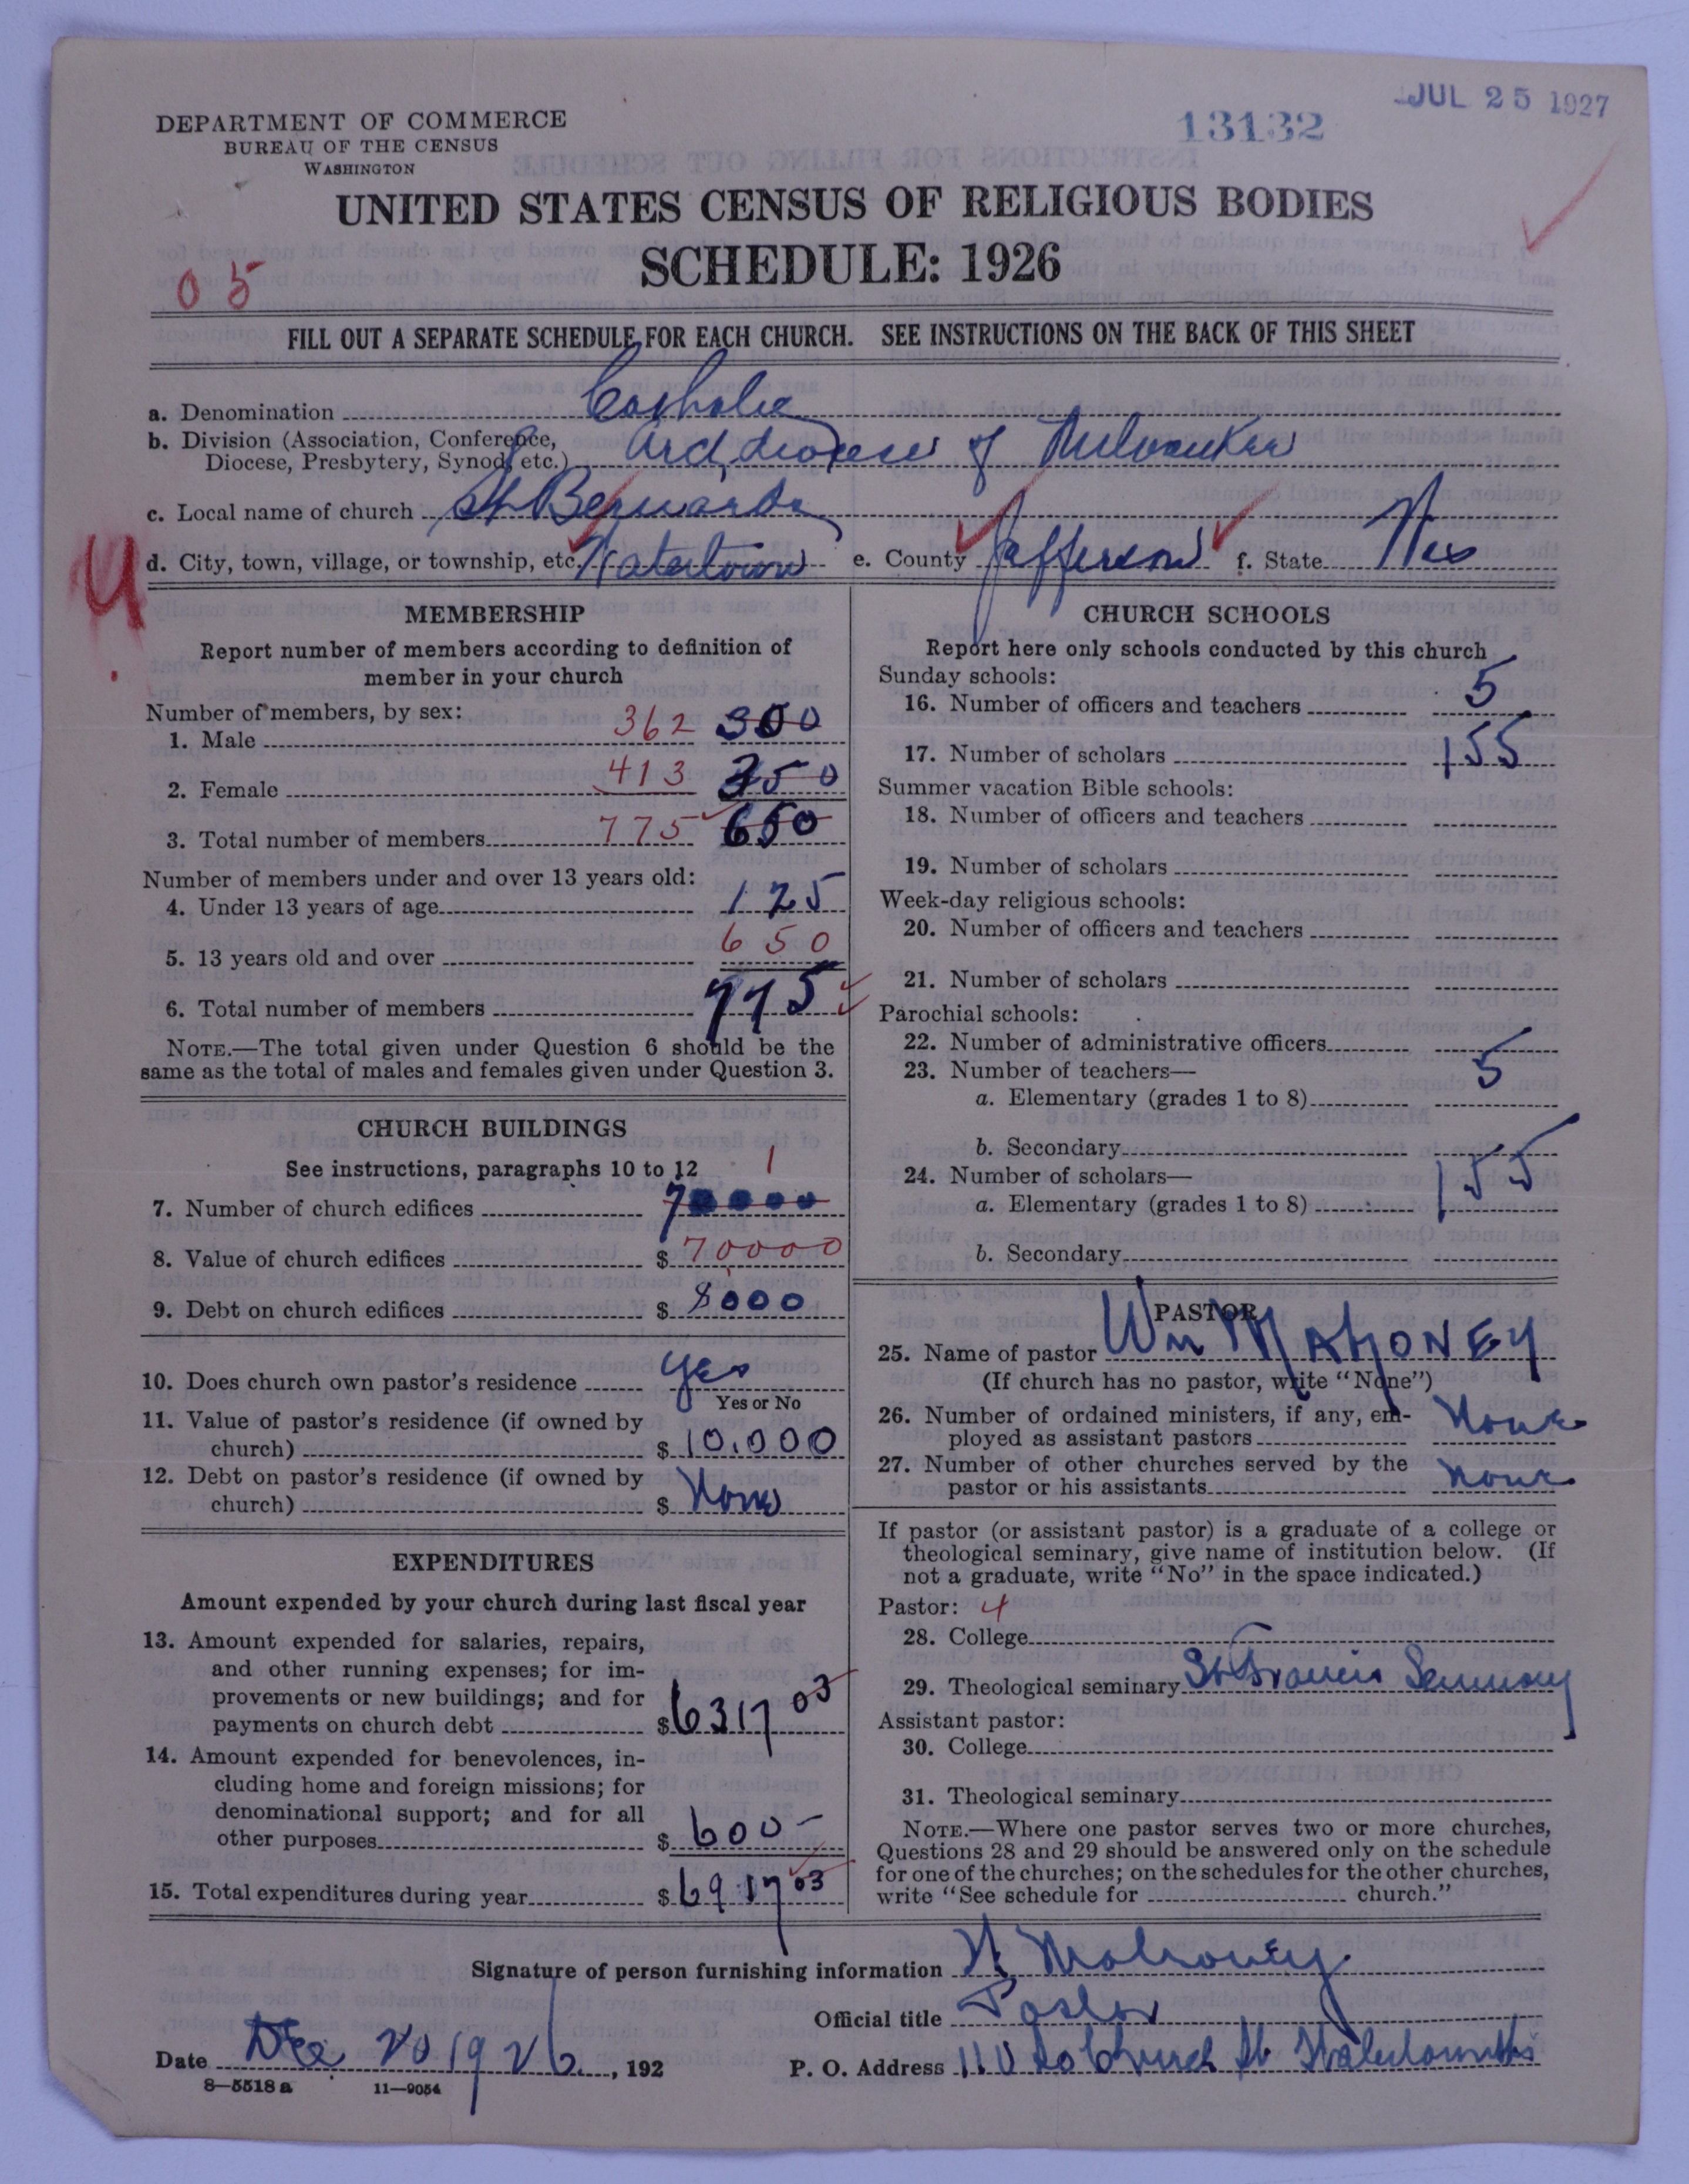 JUL 25 1927
13132
DEPARTMENT OF COMMERCE
BUREAU OF THE CENSUS
WASHINGTON
UNITED STATES CENSUS OF RELIGIOUS BODIES
SCHEDULE: 1926
05
FILL OUT A SEPARATE SCHEDULE FOR EACH CHURCH. SEE INSTRUCTIONS ON THE BACK OF THIS SHEET
a. Denomination Catholic
b. Division (Association, Conference,
Diocese, Presbytery, Synod, etc.) Archdiocese of Milwaukee
c. Local name of church St Bernards
d. City, town, village, or township, etc. Watertown e. County Jefferson f. State Wis
U
MEMBERSHIP
Report number of members according to definition of
member in your church
Number of members, by sex:
1. Male 362 300
2. Female 413 350
3. Total number of members 775 650
Number of members under and over 13 years old:
4. Under 13 years of age 125
5. 13 years old and over 650
6. Total number of members 775
NOTE.—The total given under Question 6 should be the
same as the total of males and females given under Question 3.
CHURCH BUILDINGS
See instructions, paragraphs 10 to 12
1
7. Number of church edifices 70000
8. Value of church edifices $ 70000
9. Debt on church edifices $ 8000
10. Does church own pastor's residence yes
Yes or No
11. Value of pastor's residence (if owned by
church) $ 10.000
12. Debt on pastor's residence (if owned by
church) $ None
EXPENDITURES
Amount expended by your church during last fiscal year
13. Amount expended for salaries, repairs,
and other running expenses; for im-
provements or new buildings; and for
payments on church debt $ 6317 03
14. Amount expended for benevolences, in-
cluding home and foreign missions; for
denominational support; and for all
other purposes $ 600-
15. Total expenditures during year $ 6917 03
CHURCH SCHOOLS
Report here only schools conducted by this church
Sunday schools:
16. Number of officers and teachers 5
17. Number of scholars 155
Summer vacation Bible schools:
18. Number of officers and teachers
19. Number of scholars
Week-day religious schools:
20. Number of officers and teachers
21. Number of scholars
Parochial schools:
22. Number of administrative officers
23. Number of teachers—
a. Elementary (grades 1 to 8) 5
b. Secondary
24. Number of scholars—
a. Elementary (grades 1 to 8) 155
b. Secondary
PASTOR
25. Name of pastor Wm MAHONEY
(If church has no pastor, write "None")
26. Number of ordained ministers, if any, em-
ployed as assistant pastors None
27. Number of other churches served by the
pastor or his assistants None
If pastor (or assistant pastor) is a graduate of a college or
theological seminary, give name of institution below. (If
not a graduate, write "No" in the space indicated.)
Pastor: 4
28. College
29. Theological seminary St Francis Seminary
Assistant pastor:
30. College
31. Theological seminary
NOTE.—Where one pastor serves two or more churches,
Questions 28 and 29 should be answered only on the schedule
for one of the churches; on the schedules for the other churches,
write "See schedule for church."
Signature of person furnishing information W Mahoney
Official title Pastor
Date Dec 20 1926, 192 P. O. Address 110 So Church St Watertown Wis
8—5518 a 11—9054